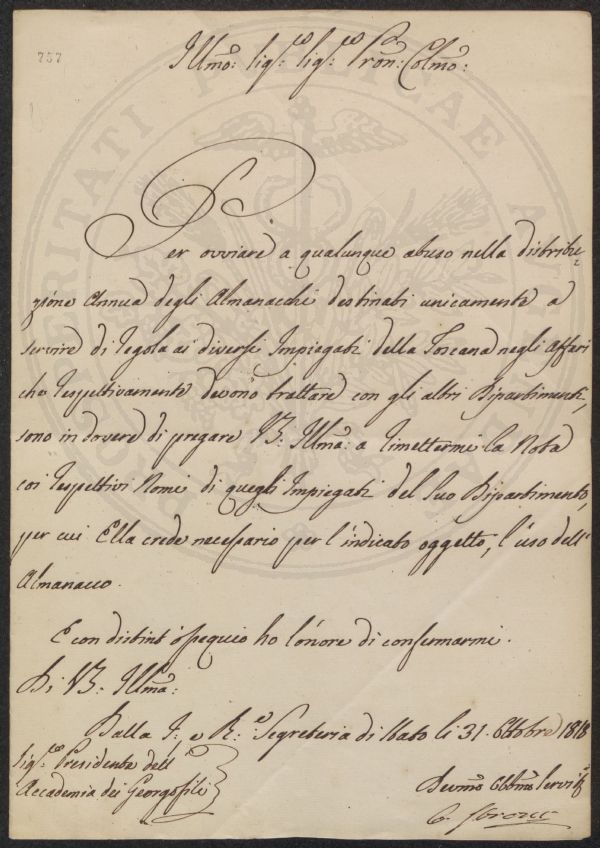 757
Illmo: Sigre Sigre Pron: Colmo:
Per ovviare a qualunque abuso nella distribu=
zione Annua degli Almanacchi destinati unicamente a
servire di regola ai diversi Impiegati della Toscana negli affari
che respettivamente devono trattare con gli altri Dipartimenti,
sono in dovere di pregare VS: Illma: a rimettermi la Nota
coi respettivi Nomi di quegli Impiegati del suo Dipartimento,
per cui Ella crede necessario per l'indicato oggetto, l'uso dell'
Almanacco.
E con distint ossequio ho l'onore di confermarmi.
Di VS: Illma:
Dalla I: e R: Segreteria di Stato li 31. Ottobre 1818
Sigre Presidente dell
Accademia dei Georgofili
Devmo Obbmo Servitre